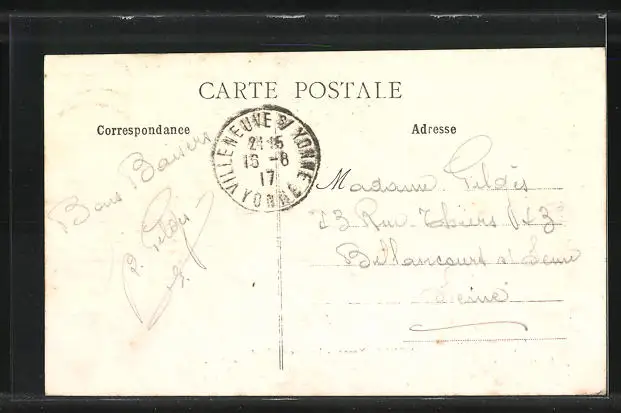 CARTE POSTALE
Correspondance
Adresse
VILLENEUVE S/ YONNE
21 15
16 -8
17
YONNE
Bons Baisers
Madame Gildès
13 Rue Thiers
Billancourt s/ Seine
Seine